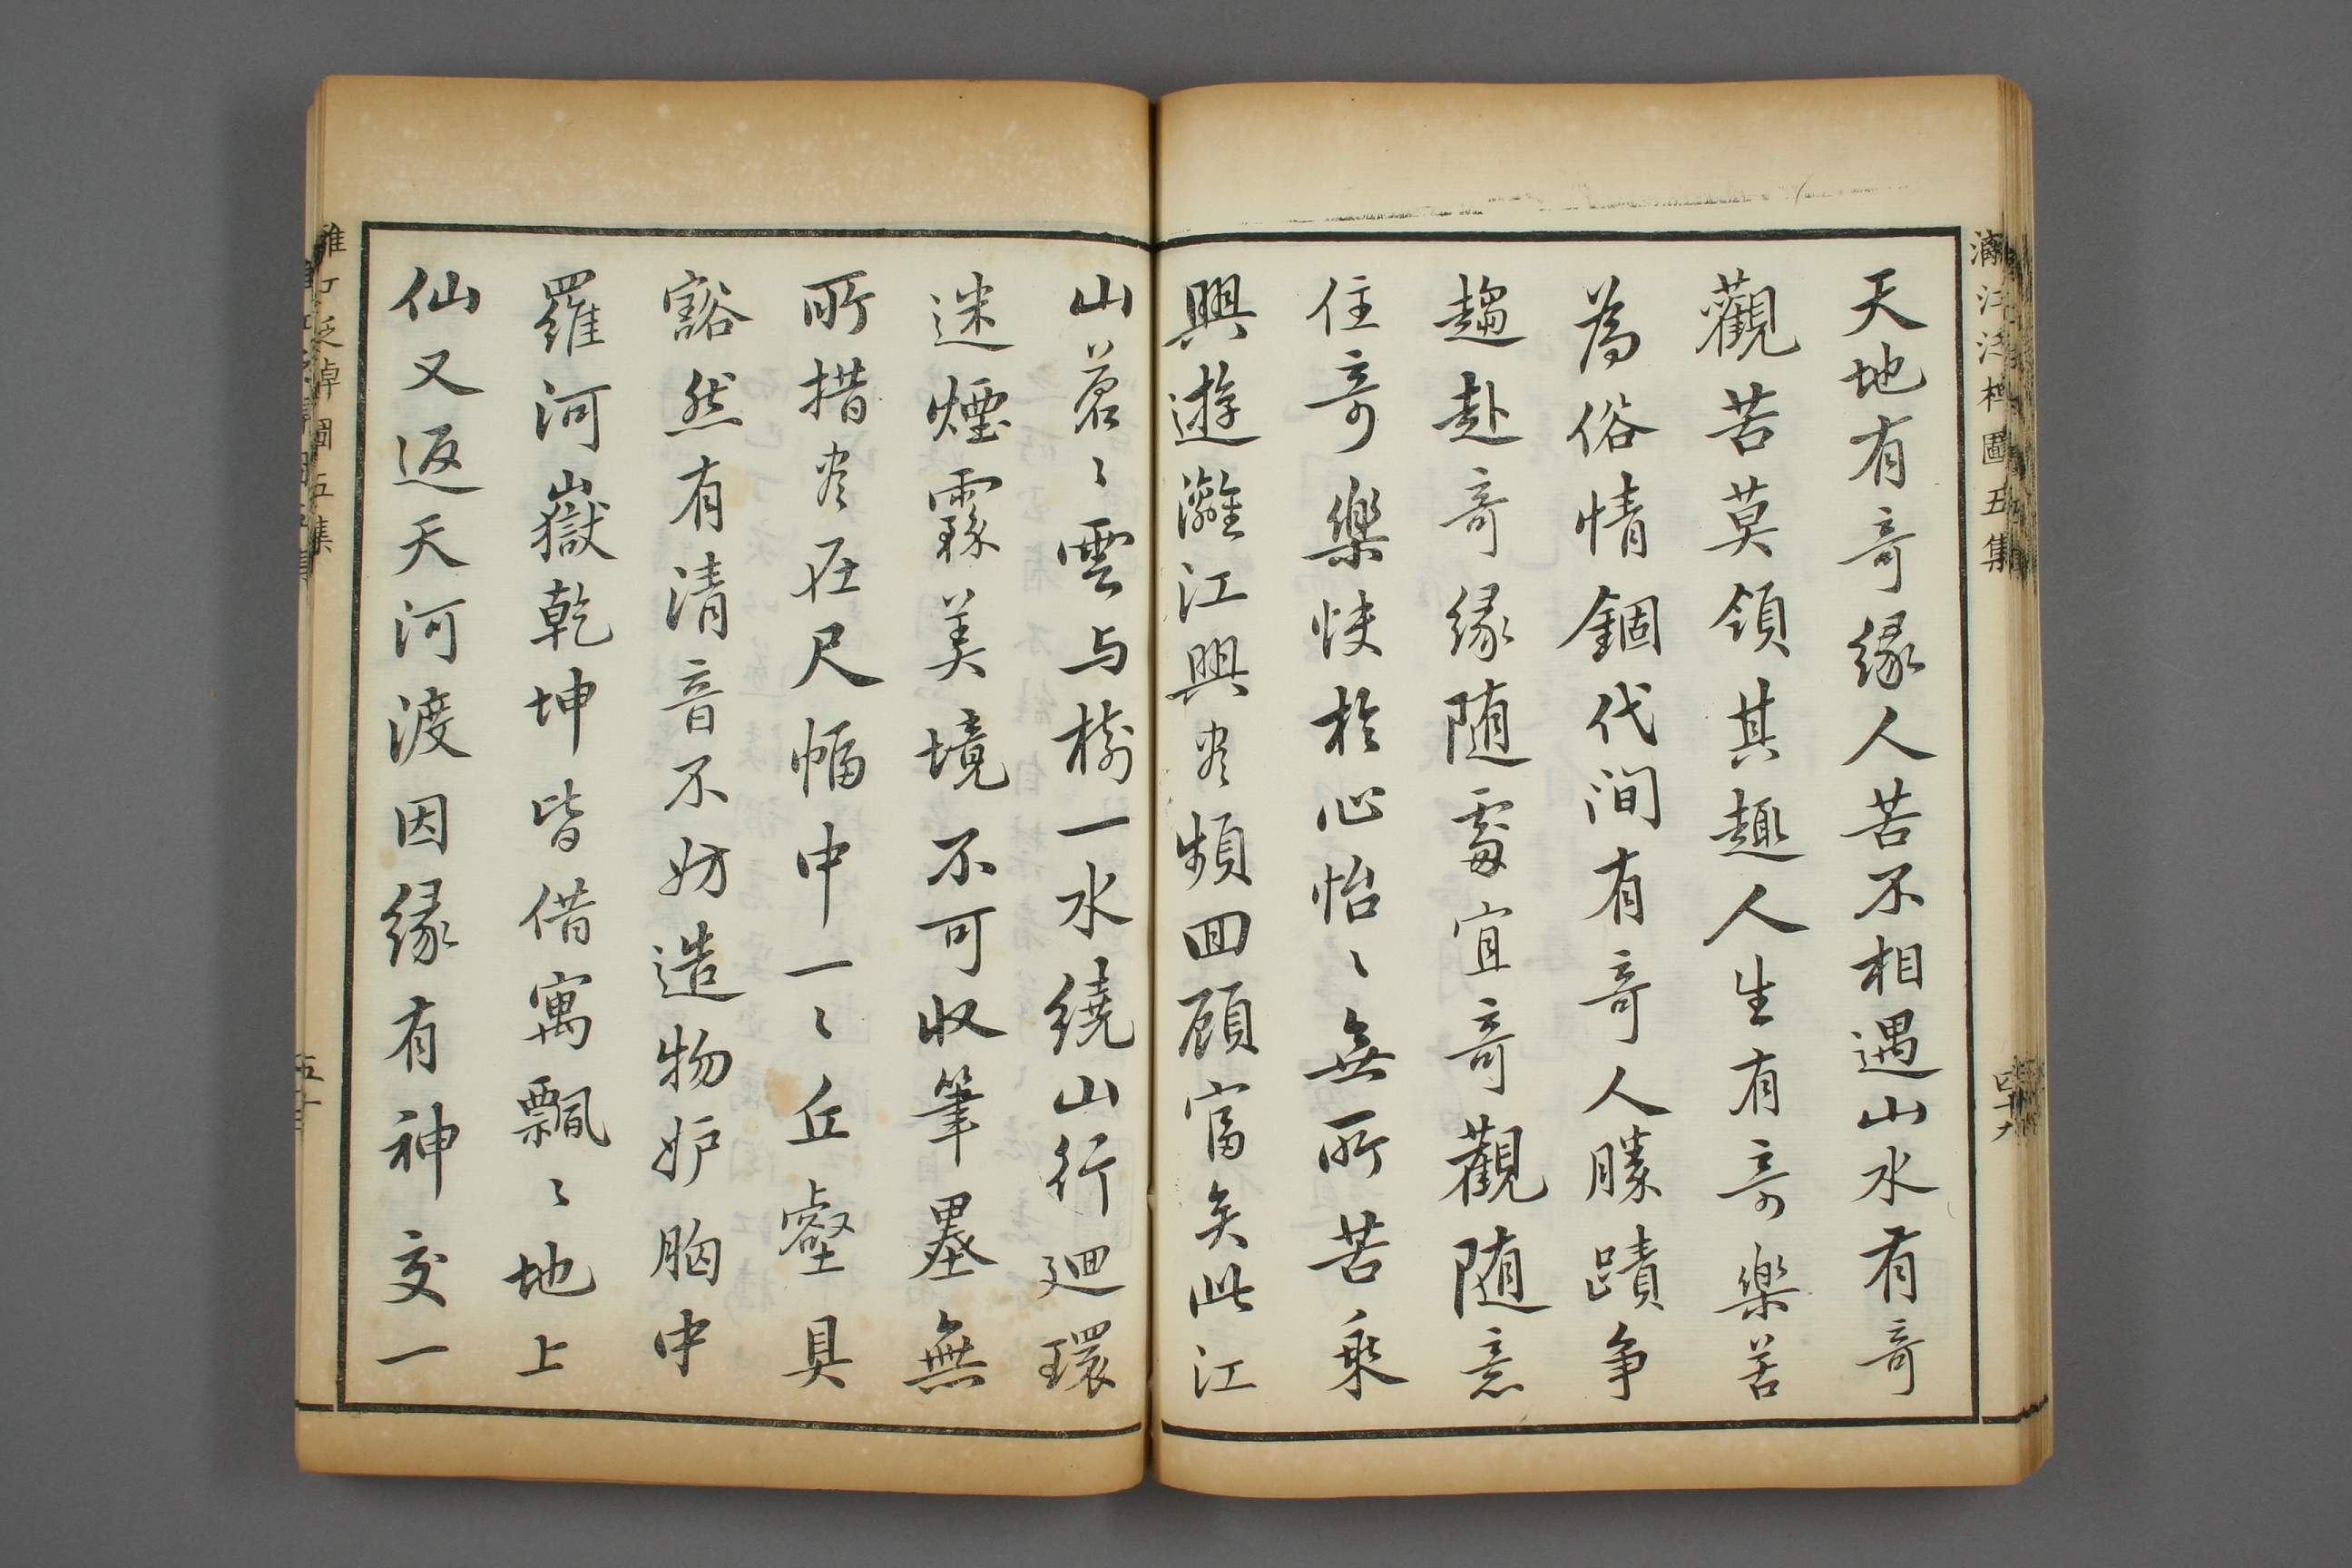 天地有奇緣人苦不相遇山水有奇
觀苦莫領其趣人生有奇樂苦
為俗情錮代間有奇人勝蹟爭
趨赴奇緣随處宜奇觀随意
住奇樂快於心怡〻無所苦乘
興遊灕江興尽頻回顧富矣此江
山蒼〻雲与樹一水繞山行迴環
迷煙霧美境不可収筆墨無
所措尽在尺幅中一〻丘壑具
豁然有清音不妨造物妒胸中
羅河嶽乾坤皆借寓飄〻地上
仙又返天河渡因緣有神交一
五集
圖五集